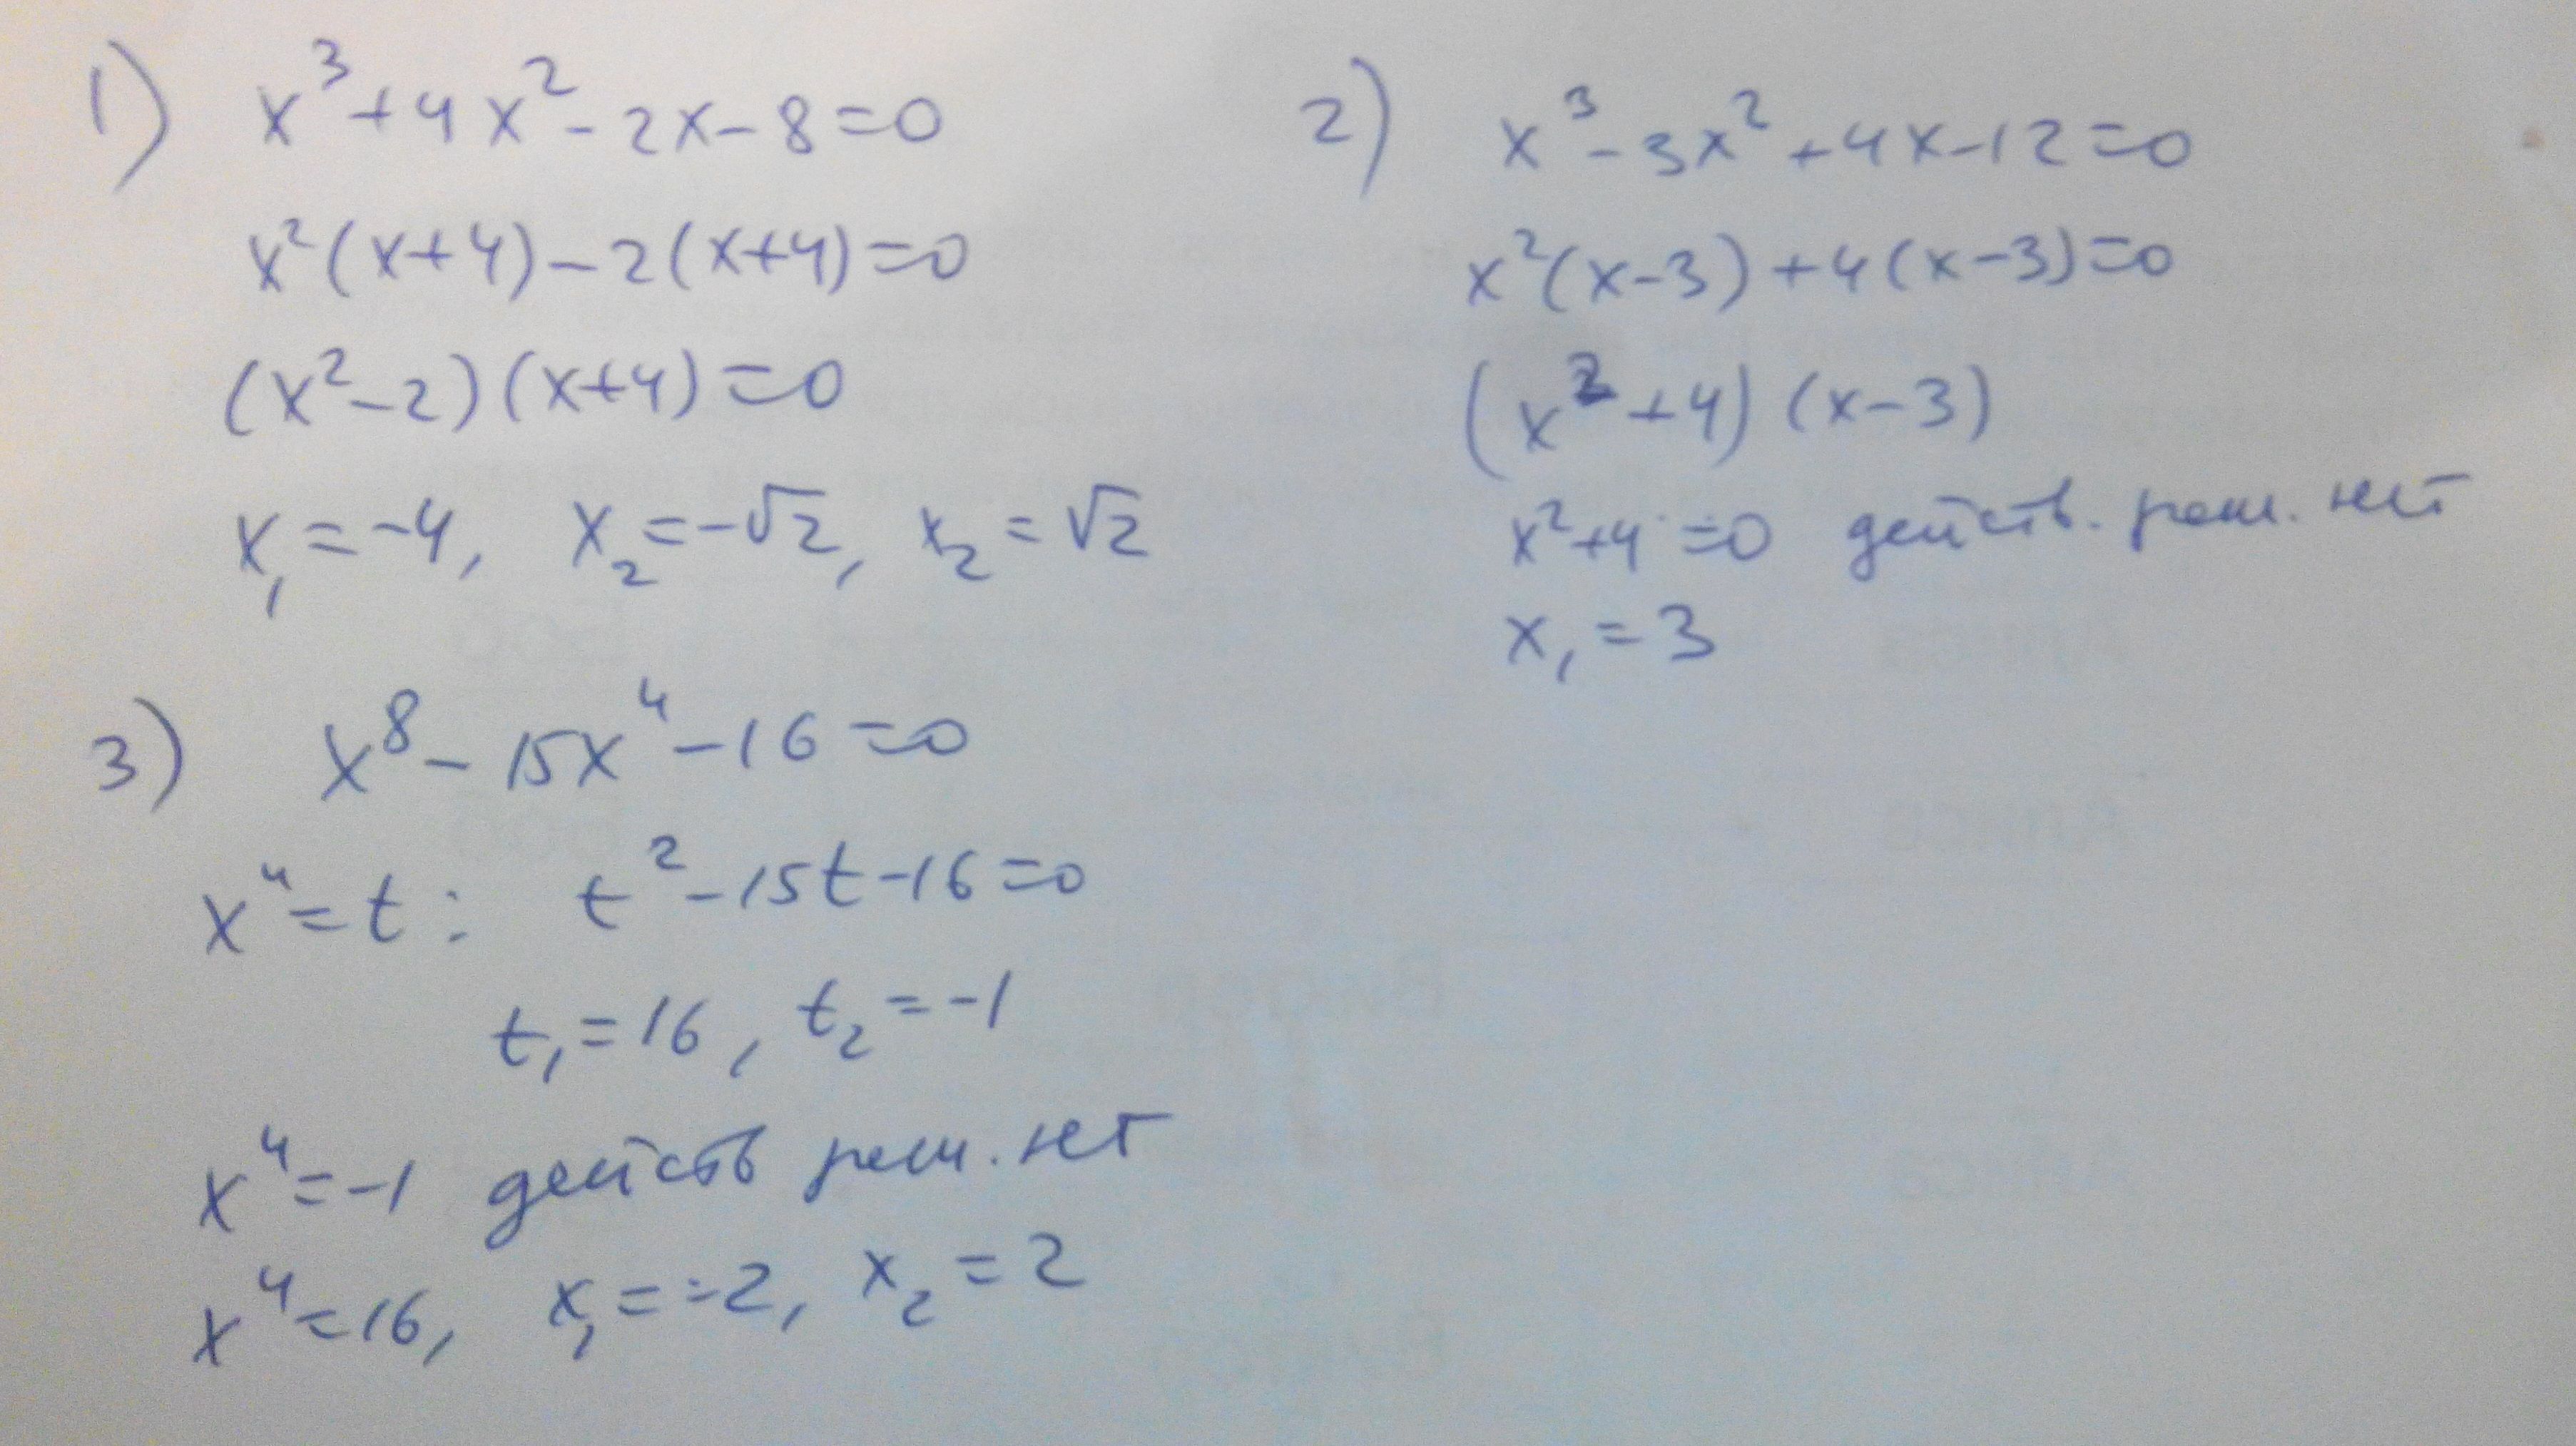 1) x³+4x²-2x-8=0
x²(x+4)-2(x+4)=0
(x²-2)(x+4)=0
x₁=-4, x₂=-√2, x₂=√2
2) x³-3x²+4x-12=0
x²(x-3)+4(x-3)=0
(x²+4)(x-3)
x²+4=0 действ. реш. нет
x₁=3
3) x⁸-15x⁴-16=0
x⁴=t: t²-15t-16=0
t₁=16, t₂=-1
x⁴=-1 действ реш. нет
x⁴=16, x₁=-2, x₂=2